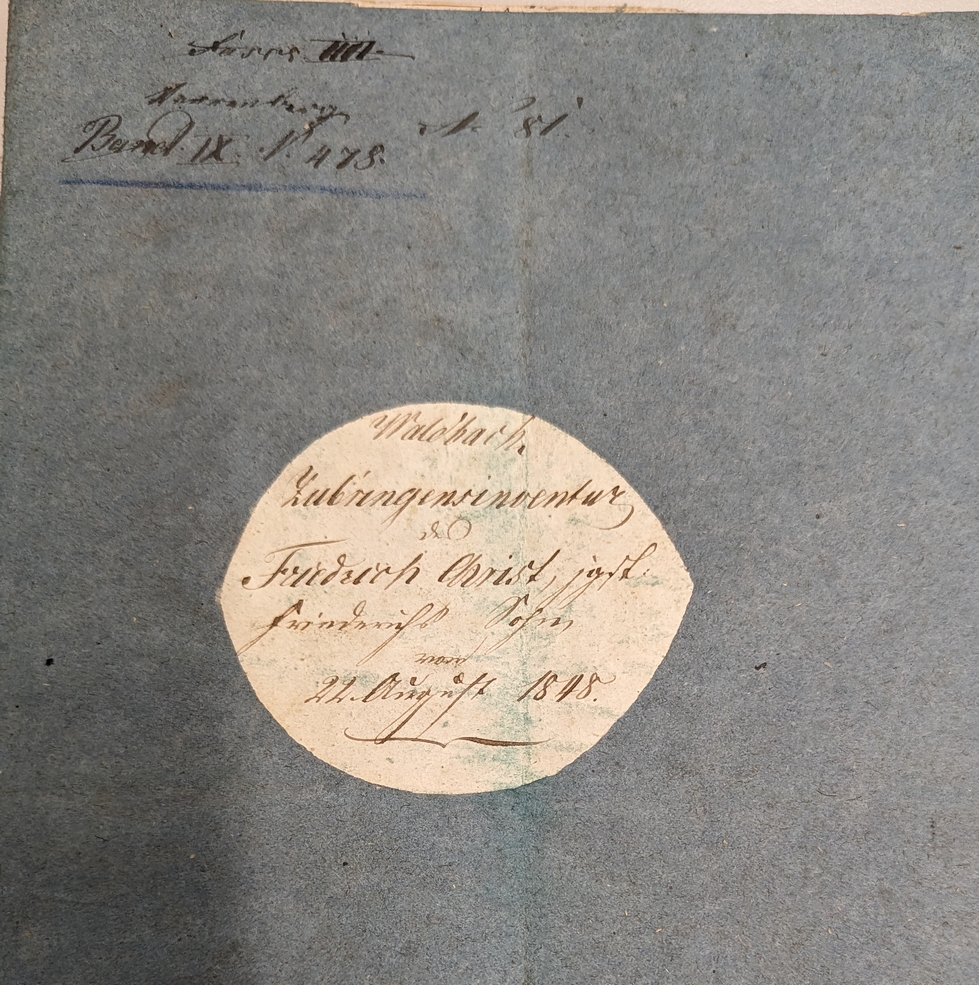 Band IX. N. 478.
N. 81.
Waldbach.
Zubringensinventur
des
Friedrich Christ, jgst.
Friederichs Sohn
vom
22. August 1848.